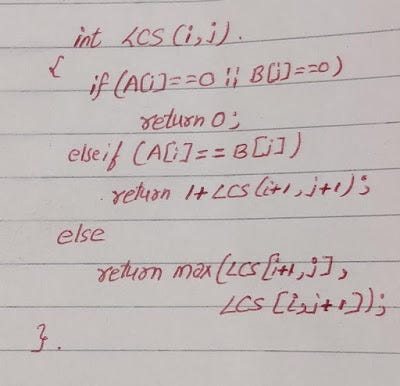 int LCS(i,j).
{
if(A[i]==0 || B[j]==0)
return 0;
elseif (A[i]==B[j])
return 1+LCS(i+1,j+1);
else
return max(LCS[i+1,j],
LCS[i,j+1]);
}.